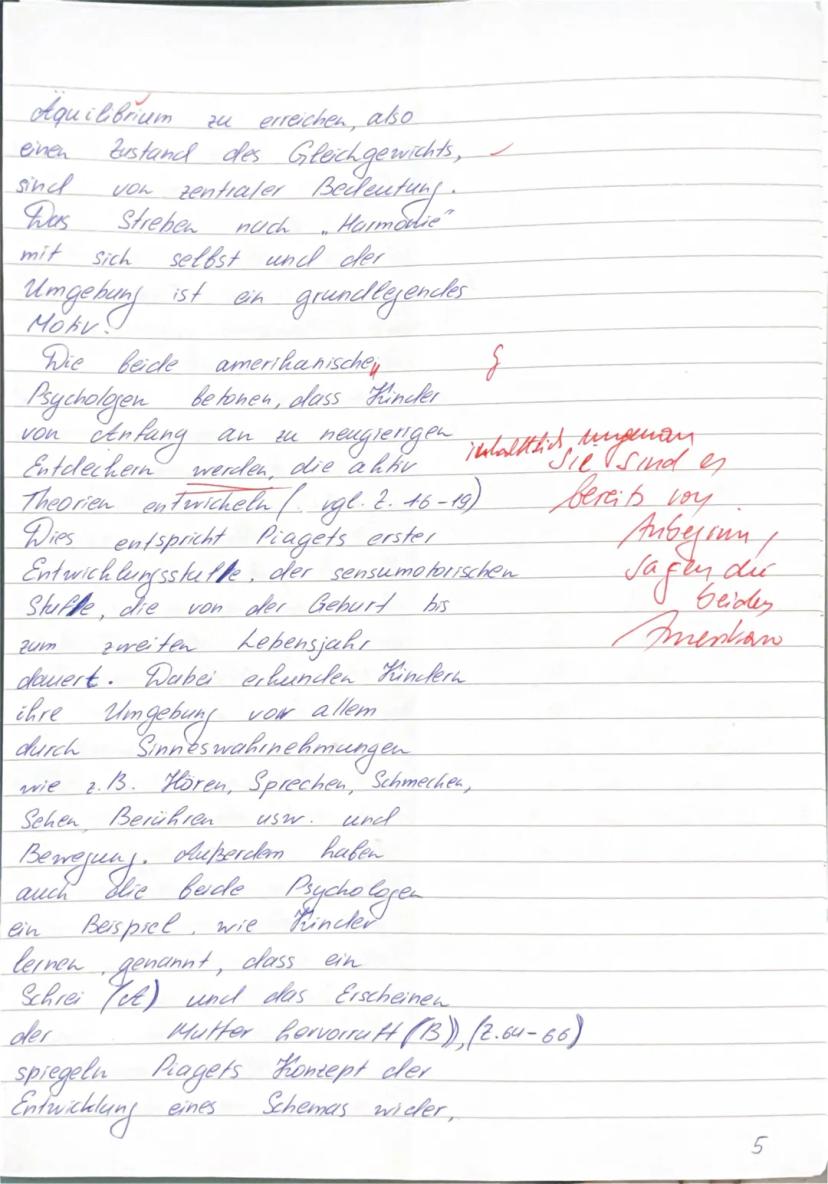 Äquilibrium zu erreichen, also
einen Zustand des Gleichgewichts,
sind von zentraler Bedeutung.
Das Streben nach „Harmonie"
mit sich selbst und der
Umgebung ist ein grundlegendes
Motiv.
Die beide amerikanische
Psychologen betonen, dass Kinder
von Anfang an zu neugierigen
inhaltlich ungenau
Entdeckern werden, die aktiv
Sie sind es
Theorien entwickeln (vgl. Z. 16-19)
bereits von
Dies entspricht Piagets erster
Anbeginn,
Entwicklungsstuffe, der sensumotorischen
sagen die
Stuffe, die von der Geburt bis
beiden
zum zweiten Lebensjahr
Amerikaner
dauert. Dabei erkunden Kindern
ihre Umgebung vor allem
durch Sinneswahrnehmungen
wie z.B. Hören, Sprechen, Schmecken,
Sehen, Berühren usw. und
Bewegung. Außerdem haben
auch die beide Psychologen
ein Beispiel, wie Kinder
lernen, genannt, dass ein
Schrei (A) und das Erscheinen
der Mutter hervorruft (B)), (Z. 64-66)
spiegeln Piagets Konzept der
Entwicklung eines Schemas wider,
5